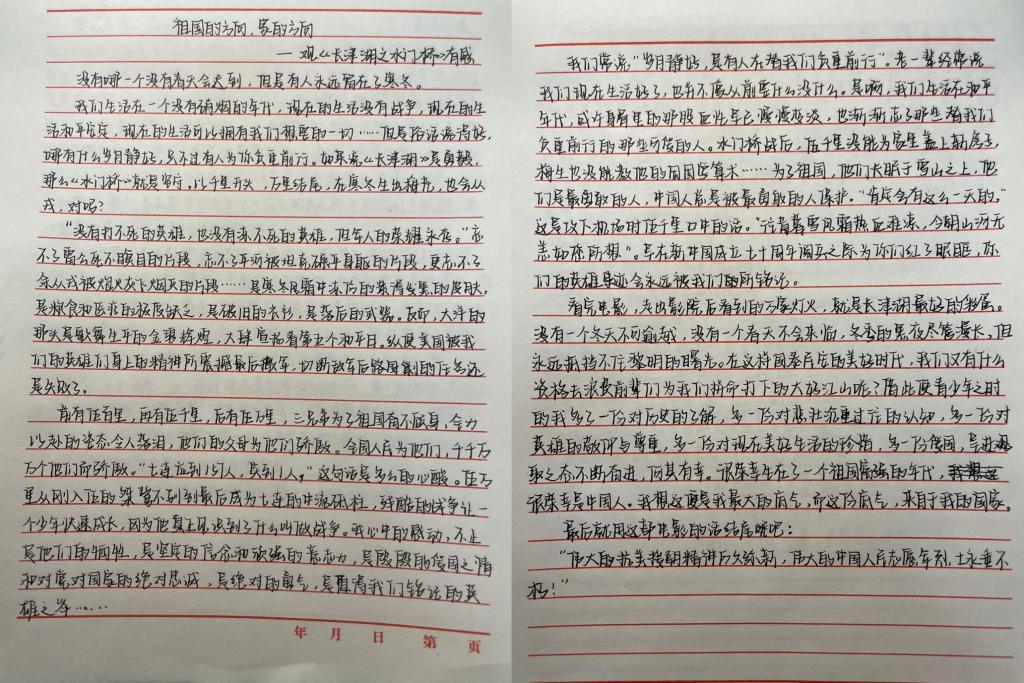 祖国的方向,家的方向
——观《长津湖之水门桥》有感
没有哪一个没有春天会达到,但是有人永远留在了寒冬。
我们生活在一个没有硝烟的年代,现在的生活没有战争,现在的生
活和平安定,现在的生活可以拥有我们想要的一切……但是俗话说得好,
哪有什么岁月静好,只不过有人为你负重前行。如果说《长津湖》是勇毅,
那么《水门桥》就是坚守。以千里开头,万里结尾,在寒冬生出梅花,也会从
戎,对吗?
“没有打不死的英雄,也没有冻不死的英雄,但军人的荣耀永存。”忘
不了雷公死不瞑目的片段,忘不了平河被坦克碾平身躯的片段,更忘不了
余从戎被炮火灰飞烟灭的片段……是寒冬风霜中冻后的紫得发黑的皮肤,
是粮食和医疗的极度缺乏,是破旧的衣衫,是落后的武器。反而,大洋的
那头是歌舞生平的金碧辉煌,大肆宣扬着第五个和平日。纵使美国被我
们的英雄们身上的精神所震撼最后撤军,切断敌军后路围剿的任务还
是失败了。
前有伍百里,再有伍千里,后有伍万里,三兄弟为了祖国奋不顾身,全力
以赴的姿态令人落泪,他们的父母为他们骄傲。全国人民为他们,千千万
万个他们而骄傲。“七连应到157人,实到1人。”这句话是多么的心酸。伍万
里从刚入伍的桀骜不驯到最后成为七连的中流砥柱,残酷的战争让一
个少年快速成长,因为他真正见识到了什么叫做战争。我心中的感动,不止
是他们的牺牲,是坚定的信念和顽强的意志力,是殷殷的爱国之情
和对党对国家的绝对忠诚,是绝对的勇气,是值得我们铭记的英
雄之举……
年 月 日 第 页
我们常说“岁月静好,是有人在替我们负重前行”。老一辈经常说
我们现在生活好了,也并不像从前要什么没什么。是啊,我们生活在和平
年代,或许骨里的那股血性早已慢慢变淡,也渐渐忘了那些替我们
负重前行的那些可爱的人。水门桥战后,伍千里没能为家里盖上新房子,
梅生也没能教他的囡囡学算术……为了祖国,他们长眠于雪山之上,他
们是最勇敢的人,中国人总是被最勇敢的人保护。“肯定会有这么一天的。”
这是攻下机场时伍千里口中的话。“许君暮雪风霜热血难凉,今朝山河无
恙如您所想”。早在新中国成立七十周年阅兵之际为你们红了眼眶,你
们的英雄事迹会永远被我们所铭记。
看完电影,走出影院后看到的万家灯火,就是长津湖最好的彩蛋。
没有一个冬天不可逾越,没有一个春天不会来临,冬季的黑夜尽管漫长,但
永远抵挡不住黎明的曙光。在这样国泰民安的美好时代,我们又有什么
资格去浪费前辈们为我们拼命打下的大好江山呢?借此使青少年之时
的我多了一份对历史的了解,多一份对悲壮沉重过往的认知,多一份对
英雄的敬仰与尊重,多一份对现在美好生活的珍惜,多一份爱国,呈进
取之态不断奋进,何其有幸。很荣幸生在了一个祖国富强的年代,
很荣幸是中国人。我想这便是我最大的底气,而这份底气,来自于我的国家。
最后就用这部电影的话结尾吧:
“伟大的抗美援朝精神历久弥新,伟大的中国人民志愿军烈士永垂不
朽!”